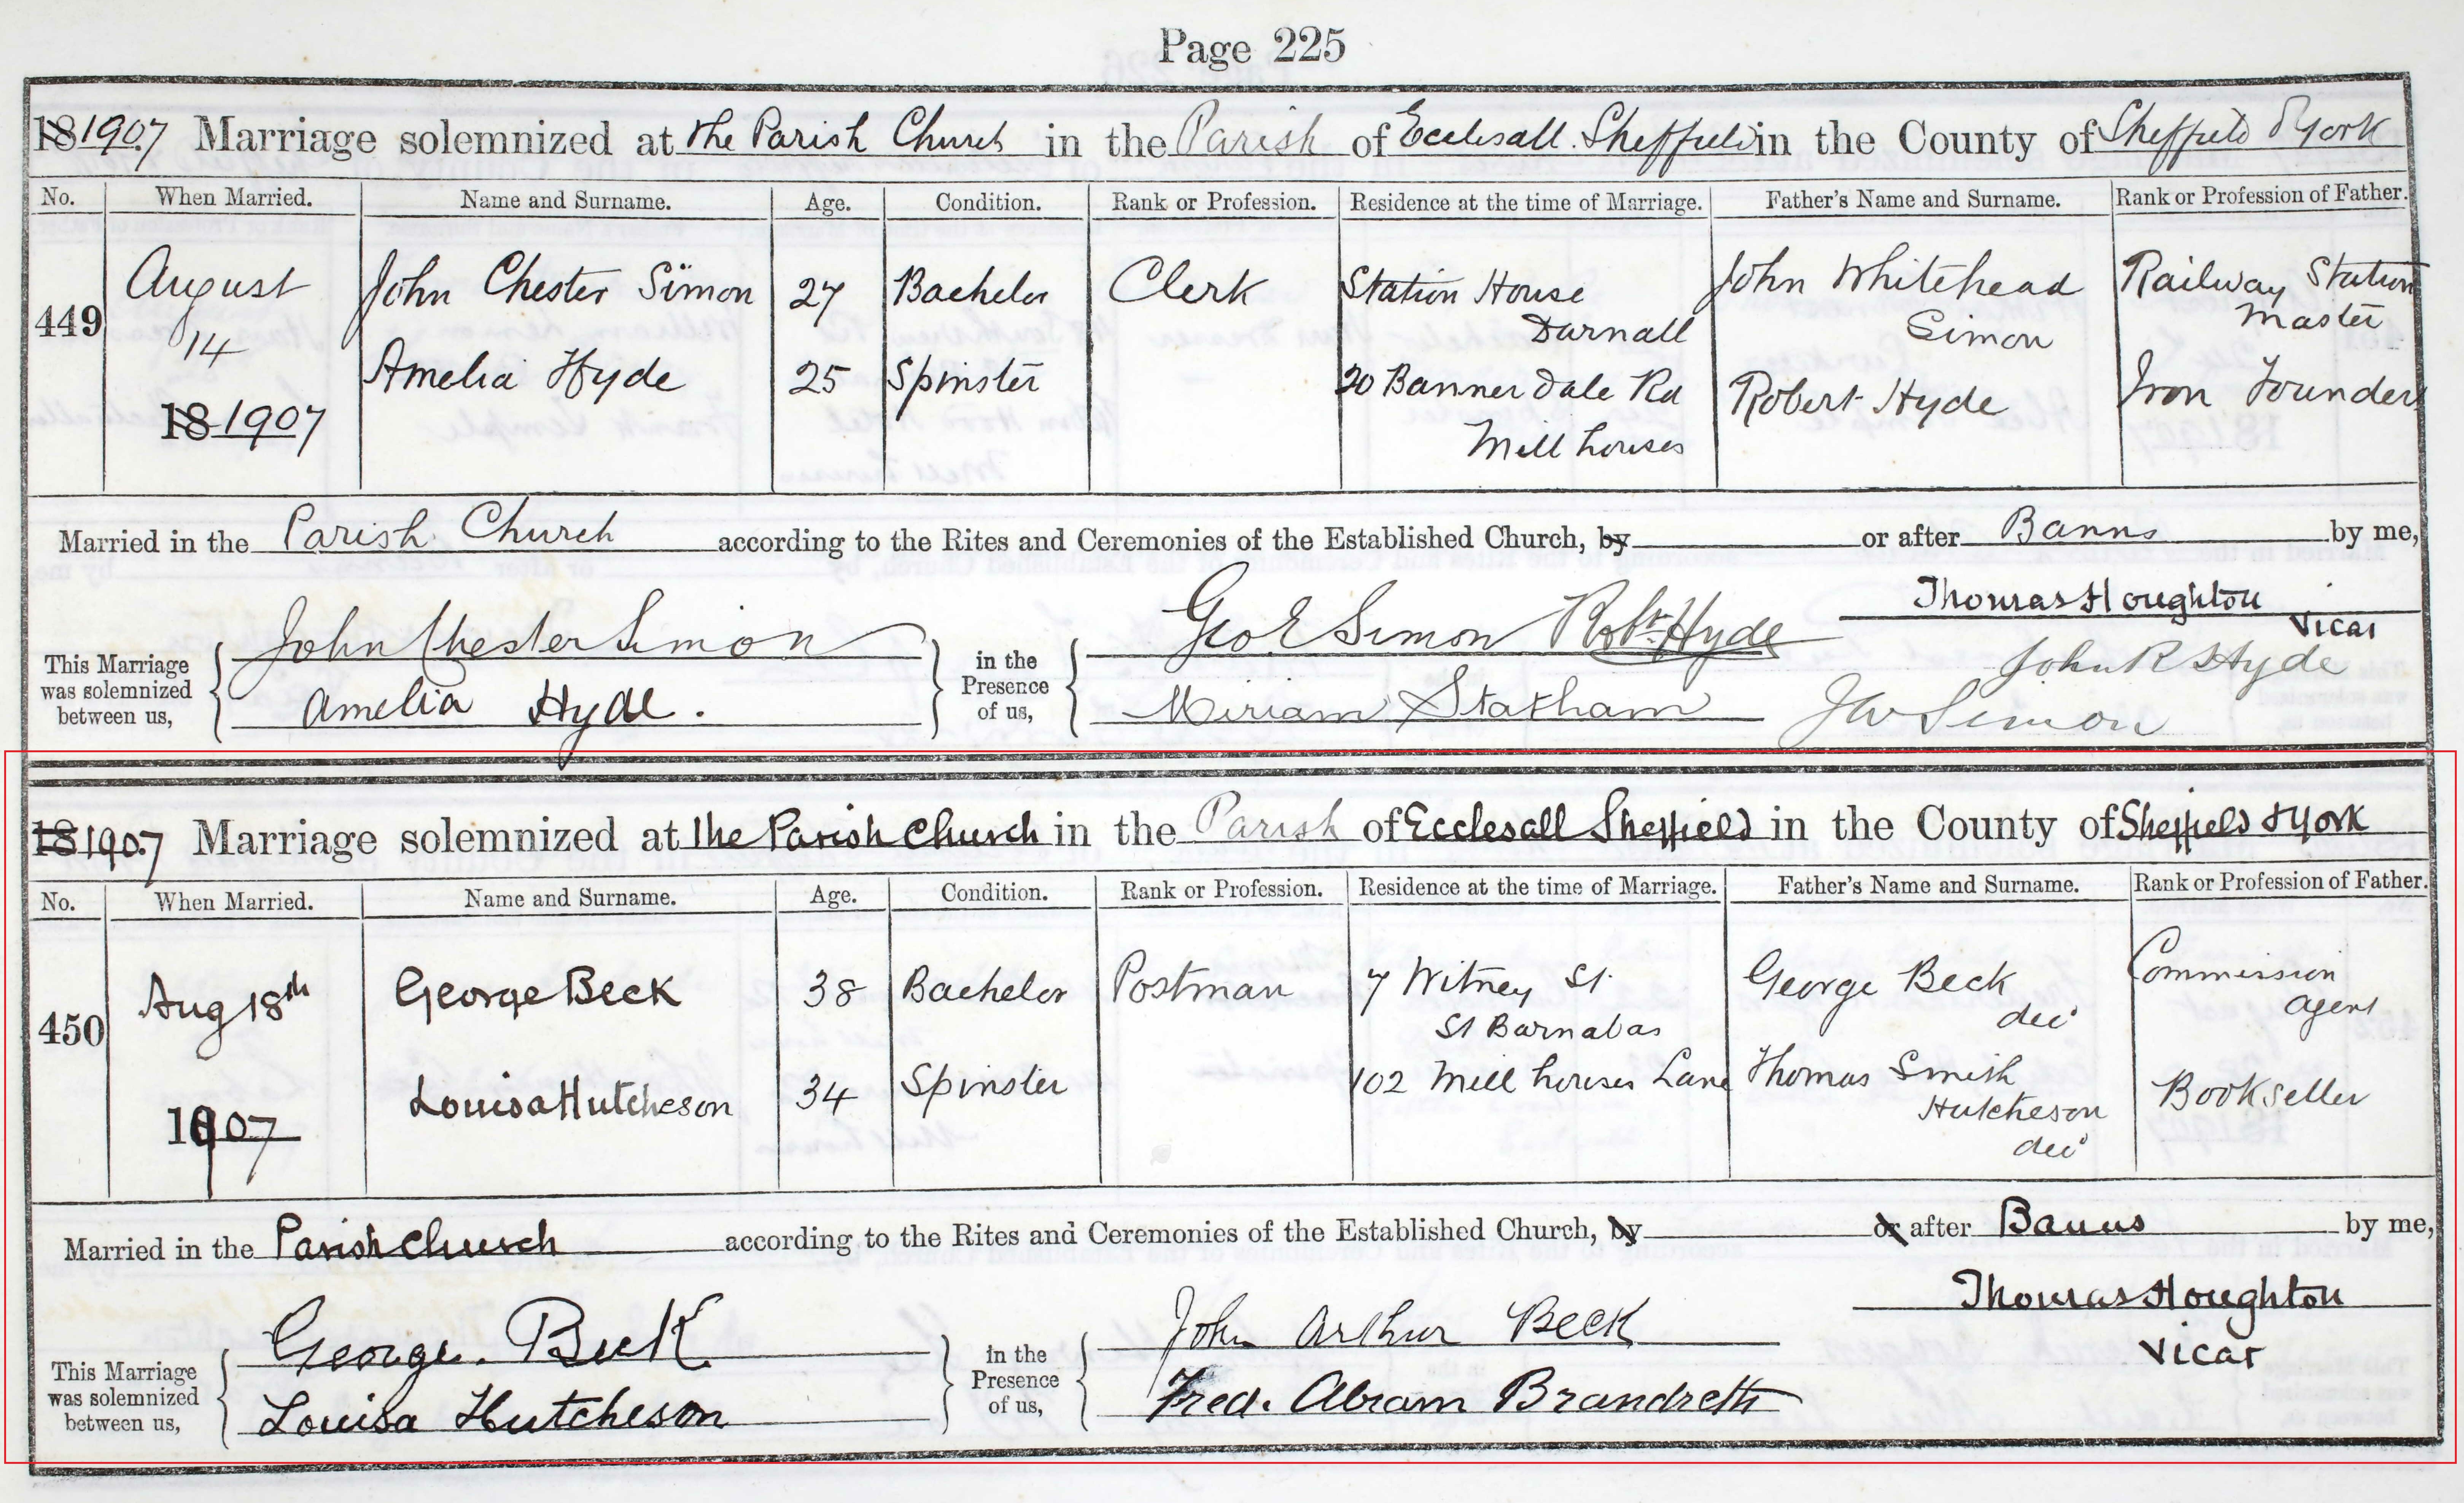 Page 225
18 1907 Marriage solemnized at the Parish Church in the Parish of Ecclesall. Sheffield in the County of Sheffield & York
No. When Married. Name and Surname. Age. Condition. Rank or Profession. Residence at the time of Marriage. Father's Name and Surname. Rank or Profession of Father.
449 August 14 18 1907
John Chester Simon 27 Bachelor Clerk Station House Darnall John Whitehead Simon Railway Station Master
Amelia Hyde 25 Spinster 20 Banner Dale Rd Mill houses Robert Hyde Iron Founder
Married in the Parish Church according to the Rites and Ceremonies of the Established Church, by or after Banns by me,
Thomas Houghton
Vicar
This Marriage was solemnized between us,
John Chester Simon
Amelia Hyde.
in the Presence of us,
Geo E Simon Robt Hyde
Miriam Statham
John R Hyde
JW Simon
18 1907 Marriage solemnized at the Parish Church in the Parish of Ecclesall Sheffield in the County of Sheffield & York
No. When Married. Name and Surname. Age. Condition. Rank or Profession. Residence at the time of Marriage. Father's Name and Surname. Rank or Profession of Father.
450 Aug 18th 1907
George Beck 38 Bachelor Postman 7 Witney St St Barnabas George Beck decd Commission agent
Louisa Hutcheson 34 Spinster 102 Mill houses Lane Thomas Smith Hutcheson decd Bookseller
Married in the Parish Church according to the Rites and Ceremonies of the Established Church, by or after Banns by me,
Thomas Houghton
Vicar
This Marriage was solemnized between us,
George. Beck
Louisa Hutcheson
in the Presence of us,
John Arthur Beck
Fred. Abram Brandreth